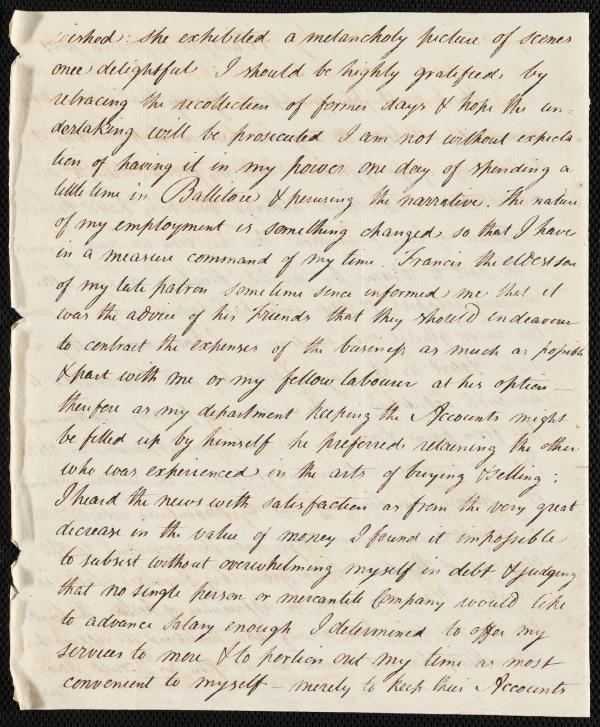 wished: she exhibited a melancholy picture of scenes
once delightful I should be highly gratified by
retracing the recollection of former days & hope the un-
dertaking will be prosecuted I am not without expecta
tion of having it in my power one day of spending a
little time in Ballitore & perusing the narrative. The nature
of my employment is something changed so that I have
in a measure command of my time. Francis the eldest son
of my late patron sometime since informed me that it
was the advice of his Friends that they should endeavour
to contract the expenses of the business as much as possible
& part with me or my fellow labourer at his option —
therefore as my department keeping the Accounts might
be filled up by himself he preferred retaining the other
who was experienced in the arts of buying & selling:
I heard the news with satisfaction as from the very great
decrease in the value of money I found it impossible
to subsist without overwhelming myself in debt & judging
that no single person or mercantile Company would like
to advance salary enough I determined to offer my
services to more & to portion out my time as most
convenient to myself — merely to keep their Accounts